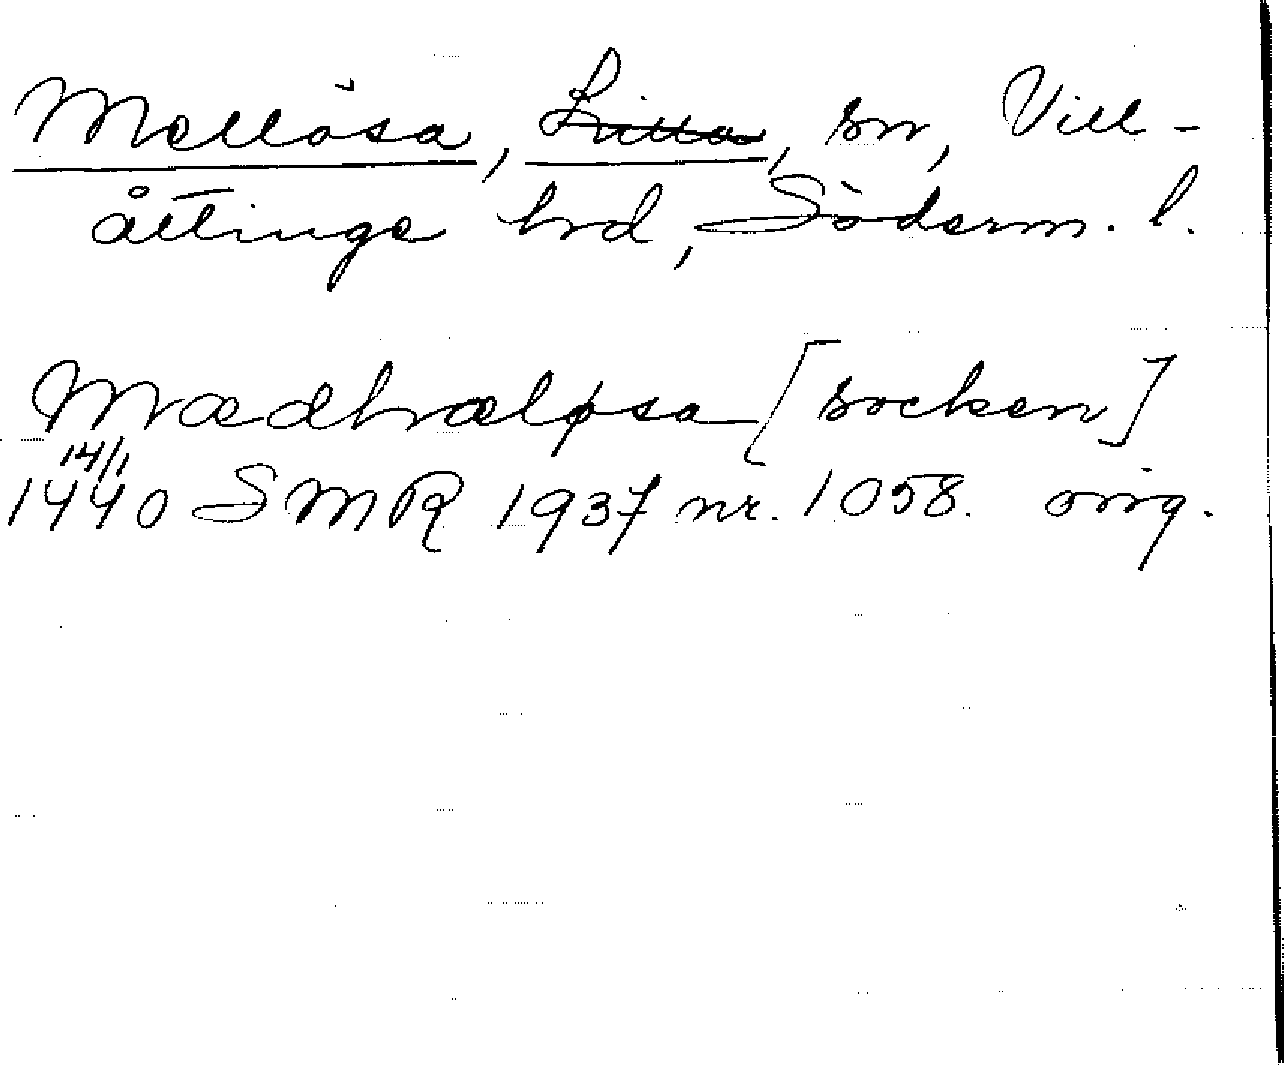 Mellösa, Lilla, sn, Vill-
åttinge hrd, Söderm. l.
Mædhræløsa [socken]
14/1
1440 SMR 1937 nr. 1058. orig.